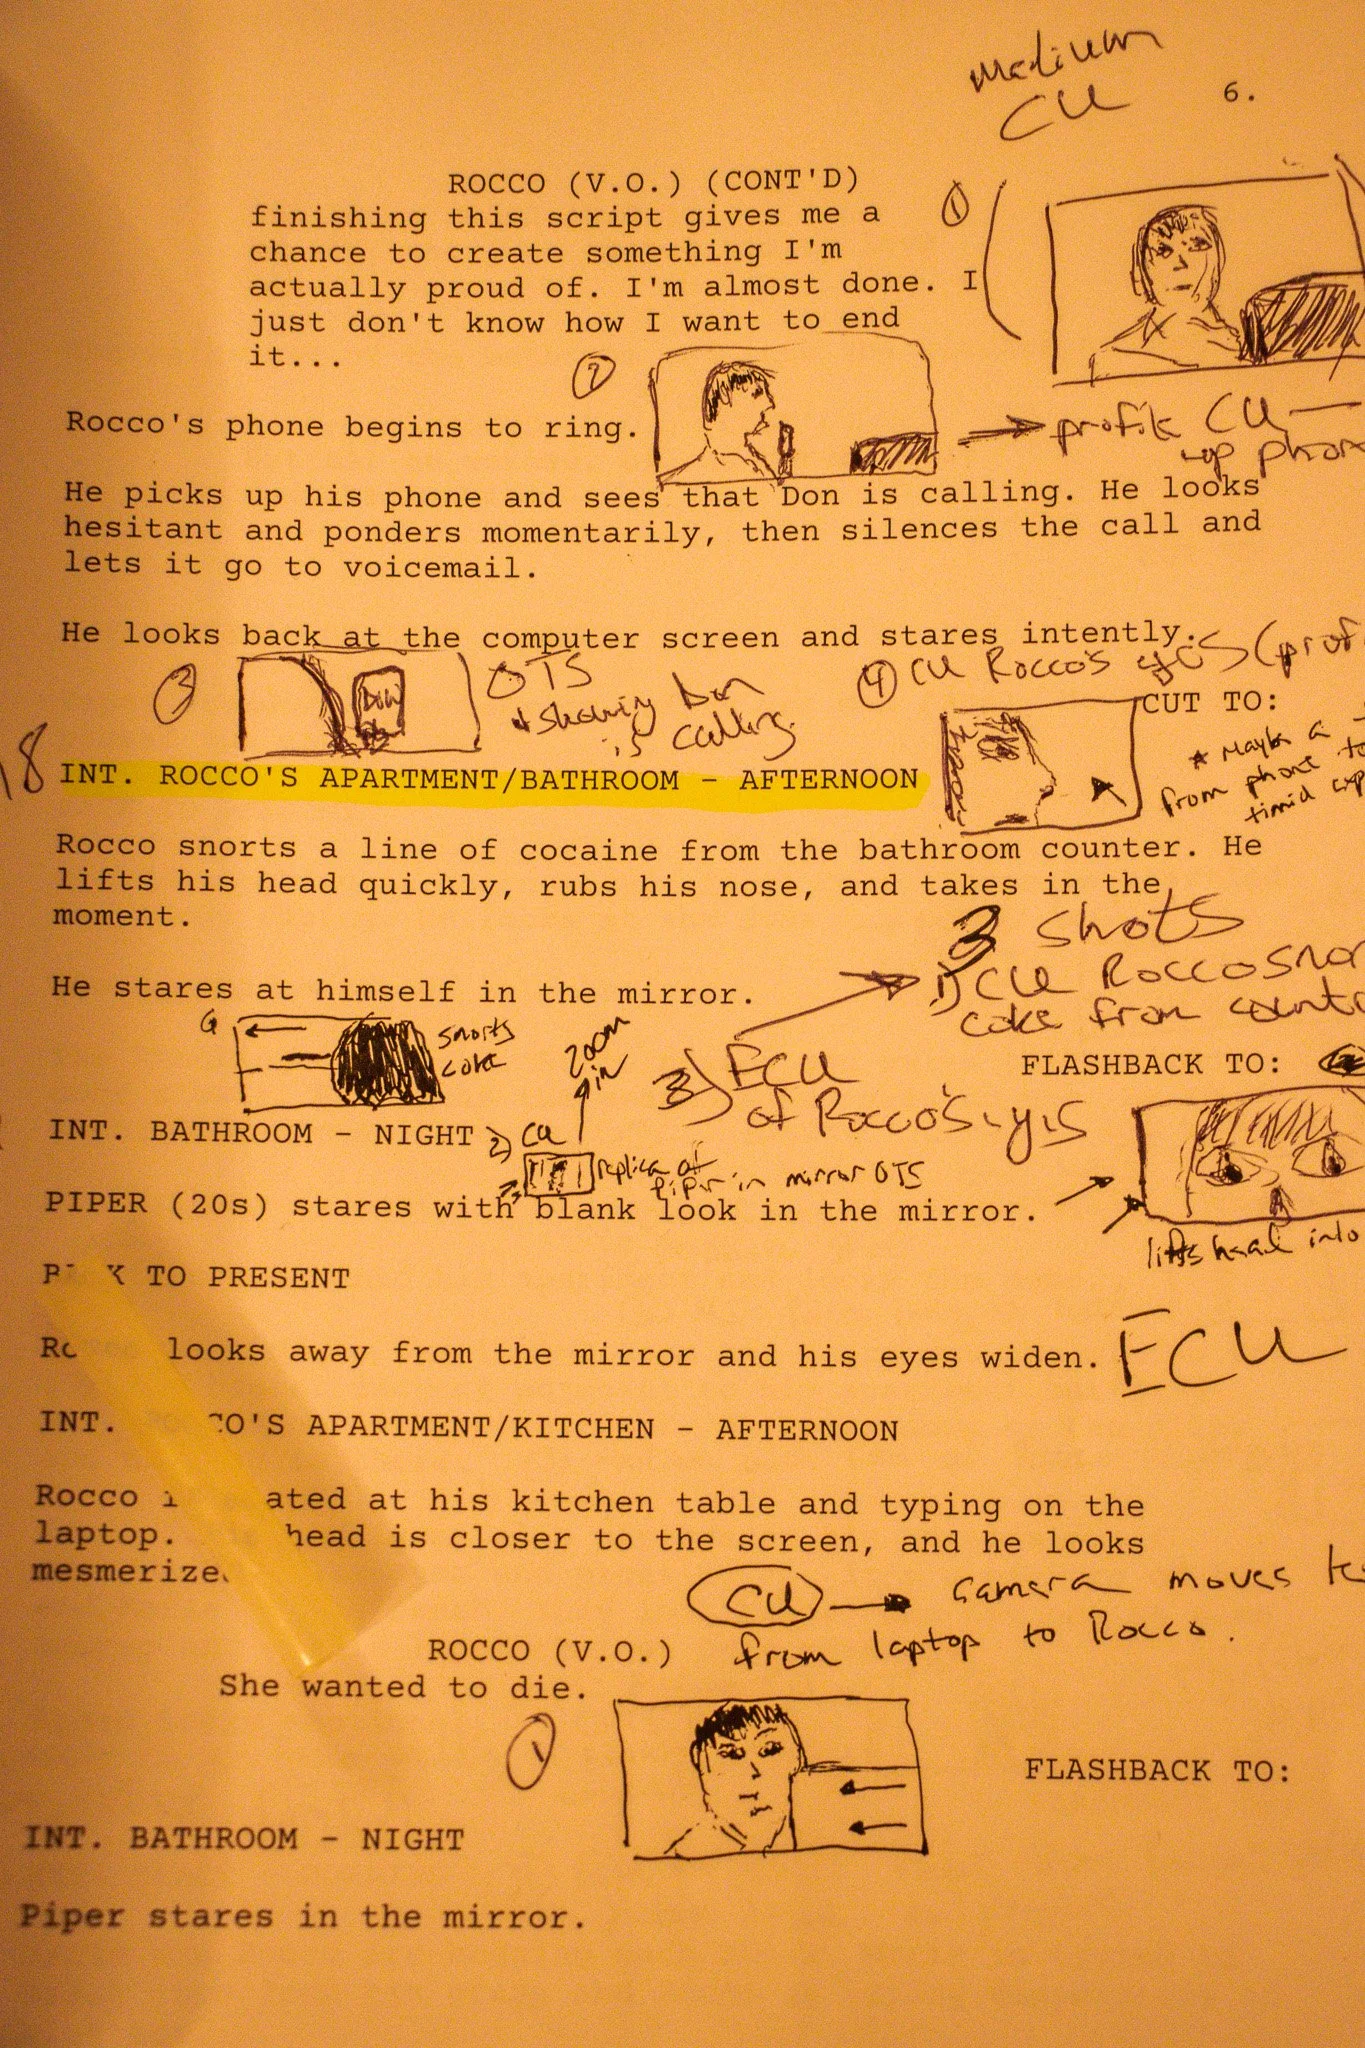 medium
CU
6.
ROCCO (V.O.) (CONT'D)
finishing this script gives me a
chance to create something I'm
actually proud of. I'm almost done. I
just don't know how I want to end
it...
1
2
Rocco's phone begins to ring.
profile CU
He picks up his phone and sees that Don is calling. He looks
hesitant and ponders momentarily, then silences the call and
lets it go to voicemail.
He looks back at the computer screen and stares intently.
3
Don
OTS
showing Don
is calling
4 CU Rocco's
CUT TO:
* Maybe a
from phone to
timid
18
INT. ROCCO'S APARTMENT/BATHROOM - AFTERNOON
Rocco snorts a line of cocaine from the bathroom counter. He
lifts his head quickly, rubs his nose, and takes in the
moment.
3 shots
1) CU Rocco
coke from
He stares at himself in the mirror.
snorts
coke
zoom
in
3) ECU
of Rocco's
FLASHBACK TO:
INT. BATHROOM - NIGHT
2) CU
replica of
Piper in mirror OTS
PIPER (20s) stares with blank look in the mirror.
lifts head into
TO PRESENT
looks away from the mirror and his eyes widen.
ECU
INT. CO'S APARTMENT/KITCHEN - AFTERNOON
Rocco ated at his kitchen table and typing on the
laptop. head is closer to the screen, and he looks
mesmerize
CU camera moves
from laptop to Rocco.
ROCCO (V.O.)
She wanted to die.
1
FLASHBACK TO:
INT. BATHROOM - NIGHT
Piper stares in the mirror.